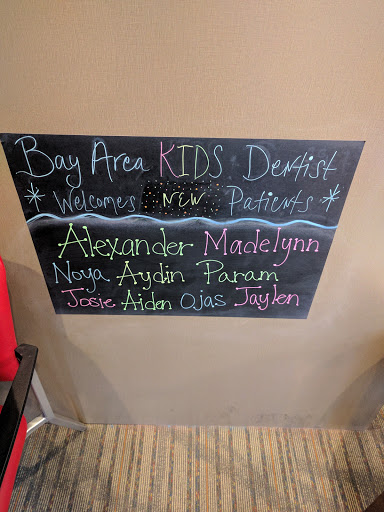 Bay Area KIDS Dentist
* Welcomes NEW Patients *
Alexander Madelynn
Noya Aydin Param
Josie Aiden Ojas Jaylen